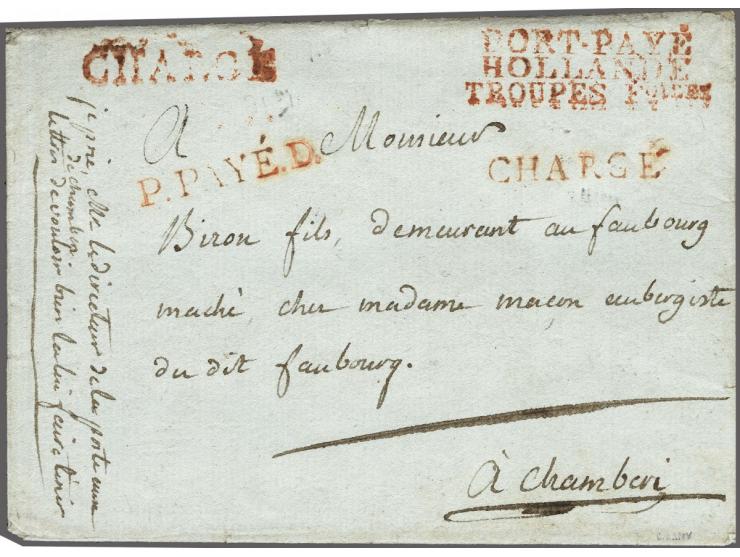 CHARGÉ
PORT-PAYÉ
HOLLANDE
TROUPES FQISES
A Monsieur
P.PAYÉ.D.
CHARGÉ
Biron fils, demeurant au faubourg
maché, cher madame maçon aubergiste
du dit faubourg.
à chamberi
je prie, Mr le directeur de la poste aux
lettres de chamberi
de vouloir bien la lui faire tenir